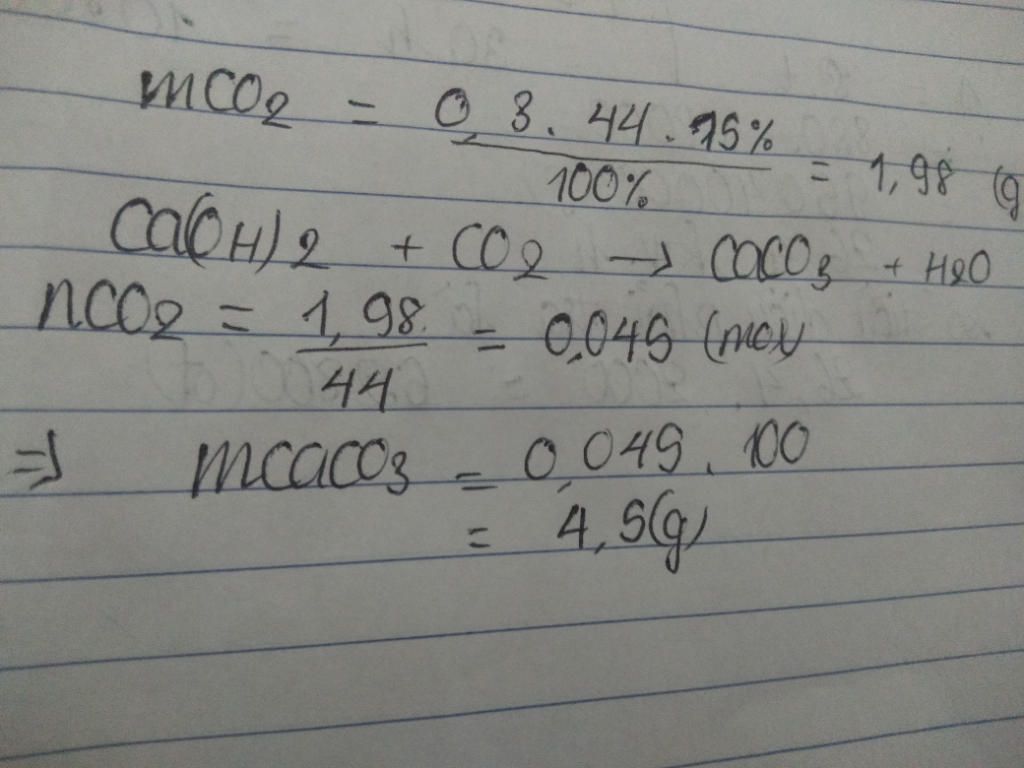 mCO2 = 0,3.44.15% / 100% = 1,98 (g
Ca(OH)2 + CO2 → CaCO3 + H2O
nCO2 = 1,98 / 44 = 0,045 (mol)
=> mCaCO3 = 0,045.100
= 4,5(g)